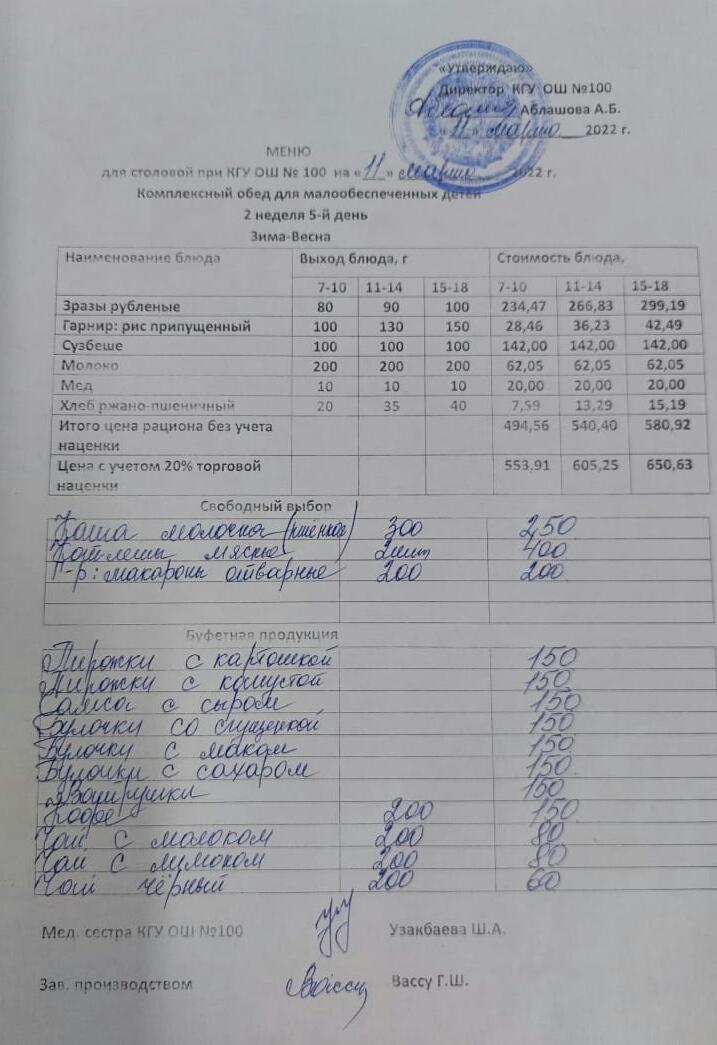 «Утверждаю»
Директор КГУ ОШ №100
Аблашова А.Б.
« 11 » марта 2022 г.
МЕНЮ
для столовой при КГУ ОШ № 100 на « 11 » марта 2022 г.
Комплексный обед для малообеспеченных детей
2 неделя 5-й день
Зима-Весна
Наименование блюда Выход блюда, г Стоимость блюда,
7-10 11-14 15-18 7-10 11-14 15-18
Зразы рубленые 80 90 100 234,47 266,83 299,19
Гарнир: рис припущенный 100 130 150 28,46 36,23 42,49
Сузбеше 100 100 100 142,00 142,00 142,00
Молоко 200 200 200 62,05 62,05 62,05
Мед 10 10 10 20,00 20,00 20,00
Хлеб ржано-пшеничный 20 35 40 7,59 13,29 15,19
Итого цена рациона без учета 494,56 540,40 580,92
наценки
Цена с учетом 20% торговой 553,91 605,25 650,63
наценки
Свободный выбор
Каша молочная (пшённая) 300 250
Котлеты мясные 2шт 400
Г-р: макароны отварные 200 200
Буфетная продукция
Пирожки с картошкой 150
Пирожки с капустой 150
Самса с сыром 150
Булочки со сгущенкой 150
Булочки с маком 150
Булочки с сахаром 150
Ватрушки 150
Кофе 200 150
Чай с молоком 200 80
Чай с лимоном 200 80
Чай чёрный 200 60
Мед. сестра КГУ ОШ №100 Узакбаева Ш.А.
Зав. производством Вассу Г.Ш.